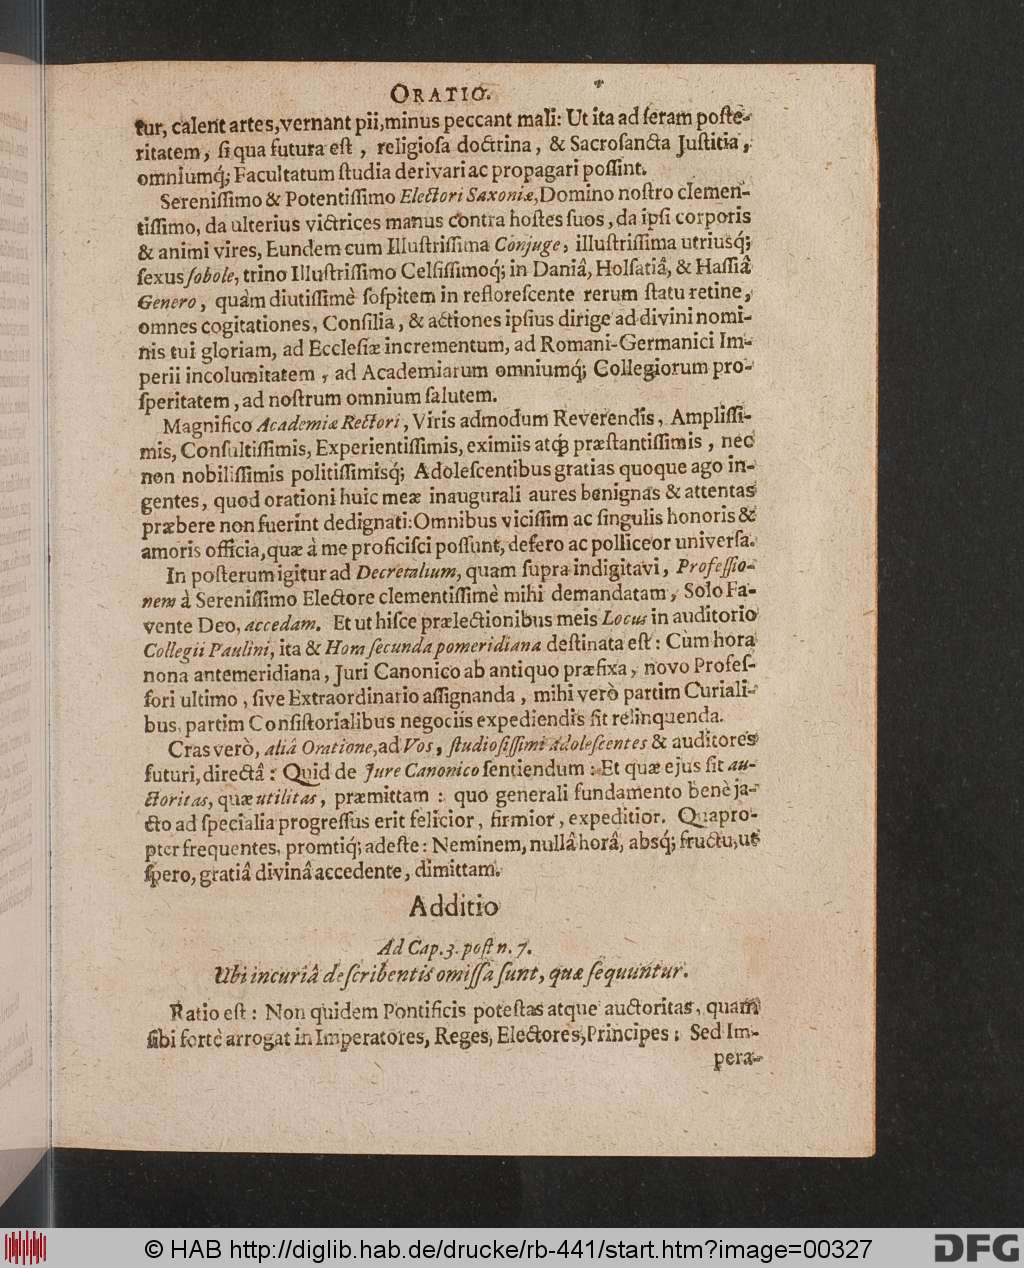 ORATIO.
tur, calent artes, vernant pii, minus peccant mali: Ut ita ad seram poste-
ritatem, ſi qua futura eſt, religioſa doctrina, & Sacroſancta Juſtitia,
omniumq́; Facultatum ſtudia derivari ac propagari poſſint.
Sereniſſimo & Potentiſſimo Electori Saxoniæ, Domino noſtro clemen-
tiſſimo, da ulterius victrices manus contra hoſtes ſuos, da ipſi corporis
& animi vires, Eundem cum Illuſtriſſima Conjuge, illuſtriſſima utriusq́;
ſexus ſobole, trino Illuſtriſſimo Celſiſſimoq́; in Daniâ, Holſatiâ, & Haſſiâ
Genero, quàm diutiſſimè ſoſpitem in refloreſcente rerum ſtatu retine,
omnes cogitationes, Conſilia, & actiones ipſius dirige ad divini nomi-
nis tui gloriam, ad Eccleſiæ incrementum, ad Romani-Germanici Im-
perii incolumitatem, ad Academiarum omniumq́; Collegiorum pro-
ſperitatem, ad noſtrum omnium ſalutem.
Magnifico Academiæ Rectori, Viris admodum Reverendis, Ampliſſi-
mis, Conſultiſſimis, Experientiſſimis, eximiis atq́; præſtantiſſimis, nec
non nobiliſſimis politiſſimisq́; Adoleſcentibus gratias quoque ago in-
gentes, quod orationi huic meæ inaugurali aures benignas & attentas
præbere non fuerint dedignati: Omnibus viciſſim ac ſingulis honoris &
amoris officia, quæ à me proficiſci poſſunt, defero ac polliceor univerſa.
In poſterum igitur ad Decretalium, quam ſupra indigitavi, Profeſſio-
nem à Sereniſſimo Electore clementiſſimè mihi demandatam, Solo Fa-
vente Deo, accedam. Et ut hiſce prælectionibus meis Locus in auditorio
Collegii Paulini, ita & Hora ſecunda pomeridiana deſtinata eſt: Cùm hora
nona antemeridiana, Juri Canonico ab antiquo præfixa, novo Profeſ-
ſori ultimo, ſive Extraordinario aſſignanda, mihi verò partim Curiali-
bus, partim Conſiſtorialibus negociis expediendis ſit relinquenda.
Cras verò, aliâ Oratione, ad Vos, ſtudioſiſſimi Adoleſcentes & auditores
futuri, directâ: Quid de Jure Canonico ſentiendum: Et quæ ejus ſit au-
ctoritas, quæ utilitas, præmittam: quo generali fundamento benè ja-
cto ad ſpecialia progreſſus erit felicior, firmior, expeditior. Quapro-
pter frequentes, promtiq́; adeſte: Neminem, nullâ horâ, absq́; fructu, ut
ſpero, gratiâ divinâ accedente, dimittam.
Additio
Ad Cap. 3. poſt n. 7.
Ubi incuriâ deſcribentis omiſſa ſunt, quæ ſequuntur.
Ratio eſt: Non quidem Pontificis poteſtas atque auctoritas, quam
ſibi fortè arrogat in Imperatores, Reges, Electores, Principes: Sed Im-
pera-
© HAB http://diglib.hab.de/drucke/rb-441/start.htm?image=00327
DFG